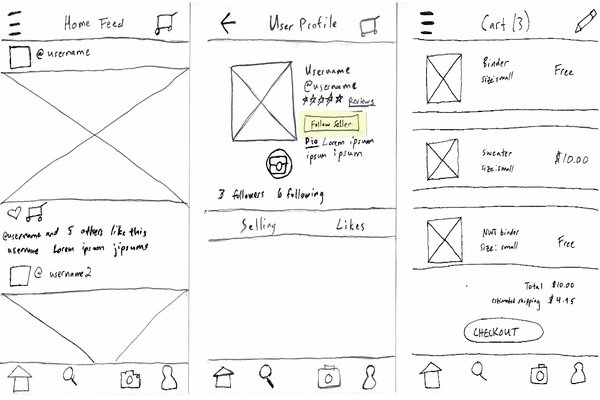 Home Feed
@username
@username and 5 others like this
username Lorem ipsum jipsums
@ username2
User Profile
Username
@username
Reviews
Follow Seller
Bio Lorem ipsum
ipsum ipsum
3 followers 6 following
Selling Likes
Cart (3)
Binder
size: small
Free
Sweater
size: small
$10.00
NWT binder
size: small
Free
Total $10.00
estimated shipping $4.95
CHECKOUT